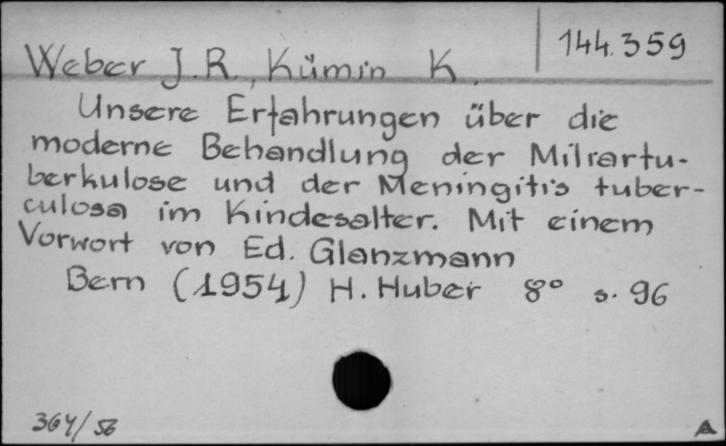 144.359
Weber J.R., Kümin K.
Unsere Erfahrungen über die
moderne Behandlung der Miliartu-
berkulose und der Meningitis tuber-
culosa im Kindesalter. Mit einem
Vorwort von Ed. Glanzmann
Bern (1954) H. Huber 8° s. 96
364/56
A